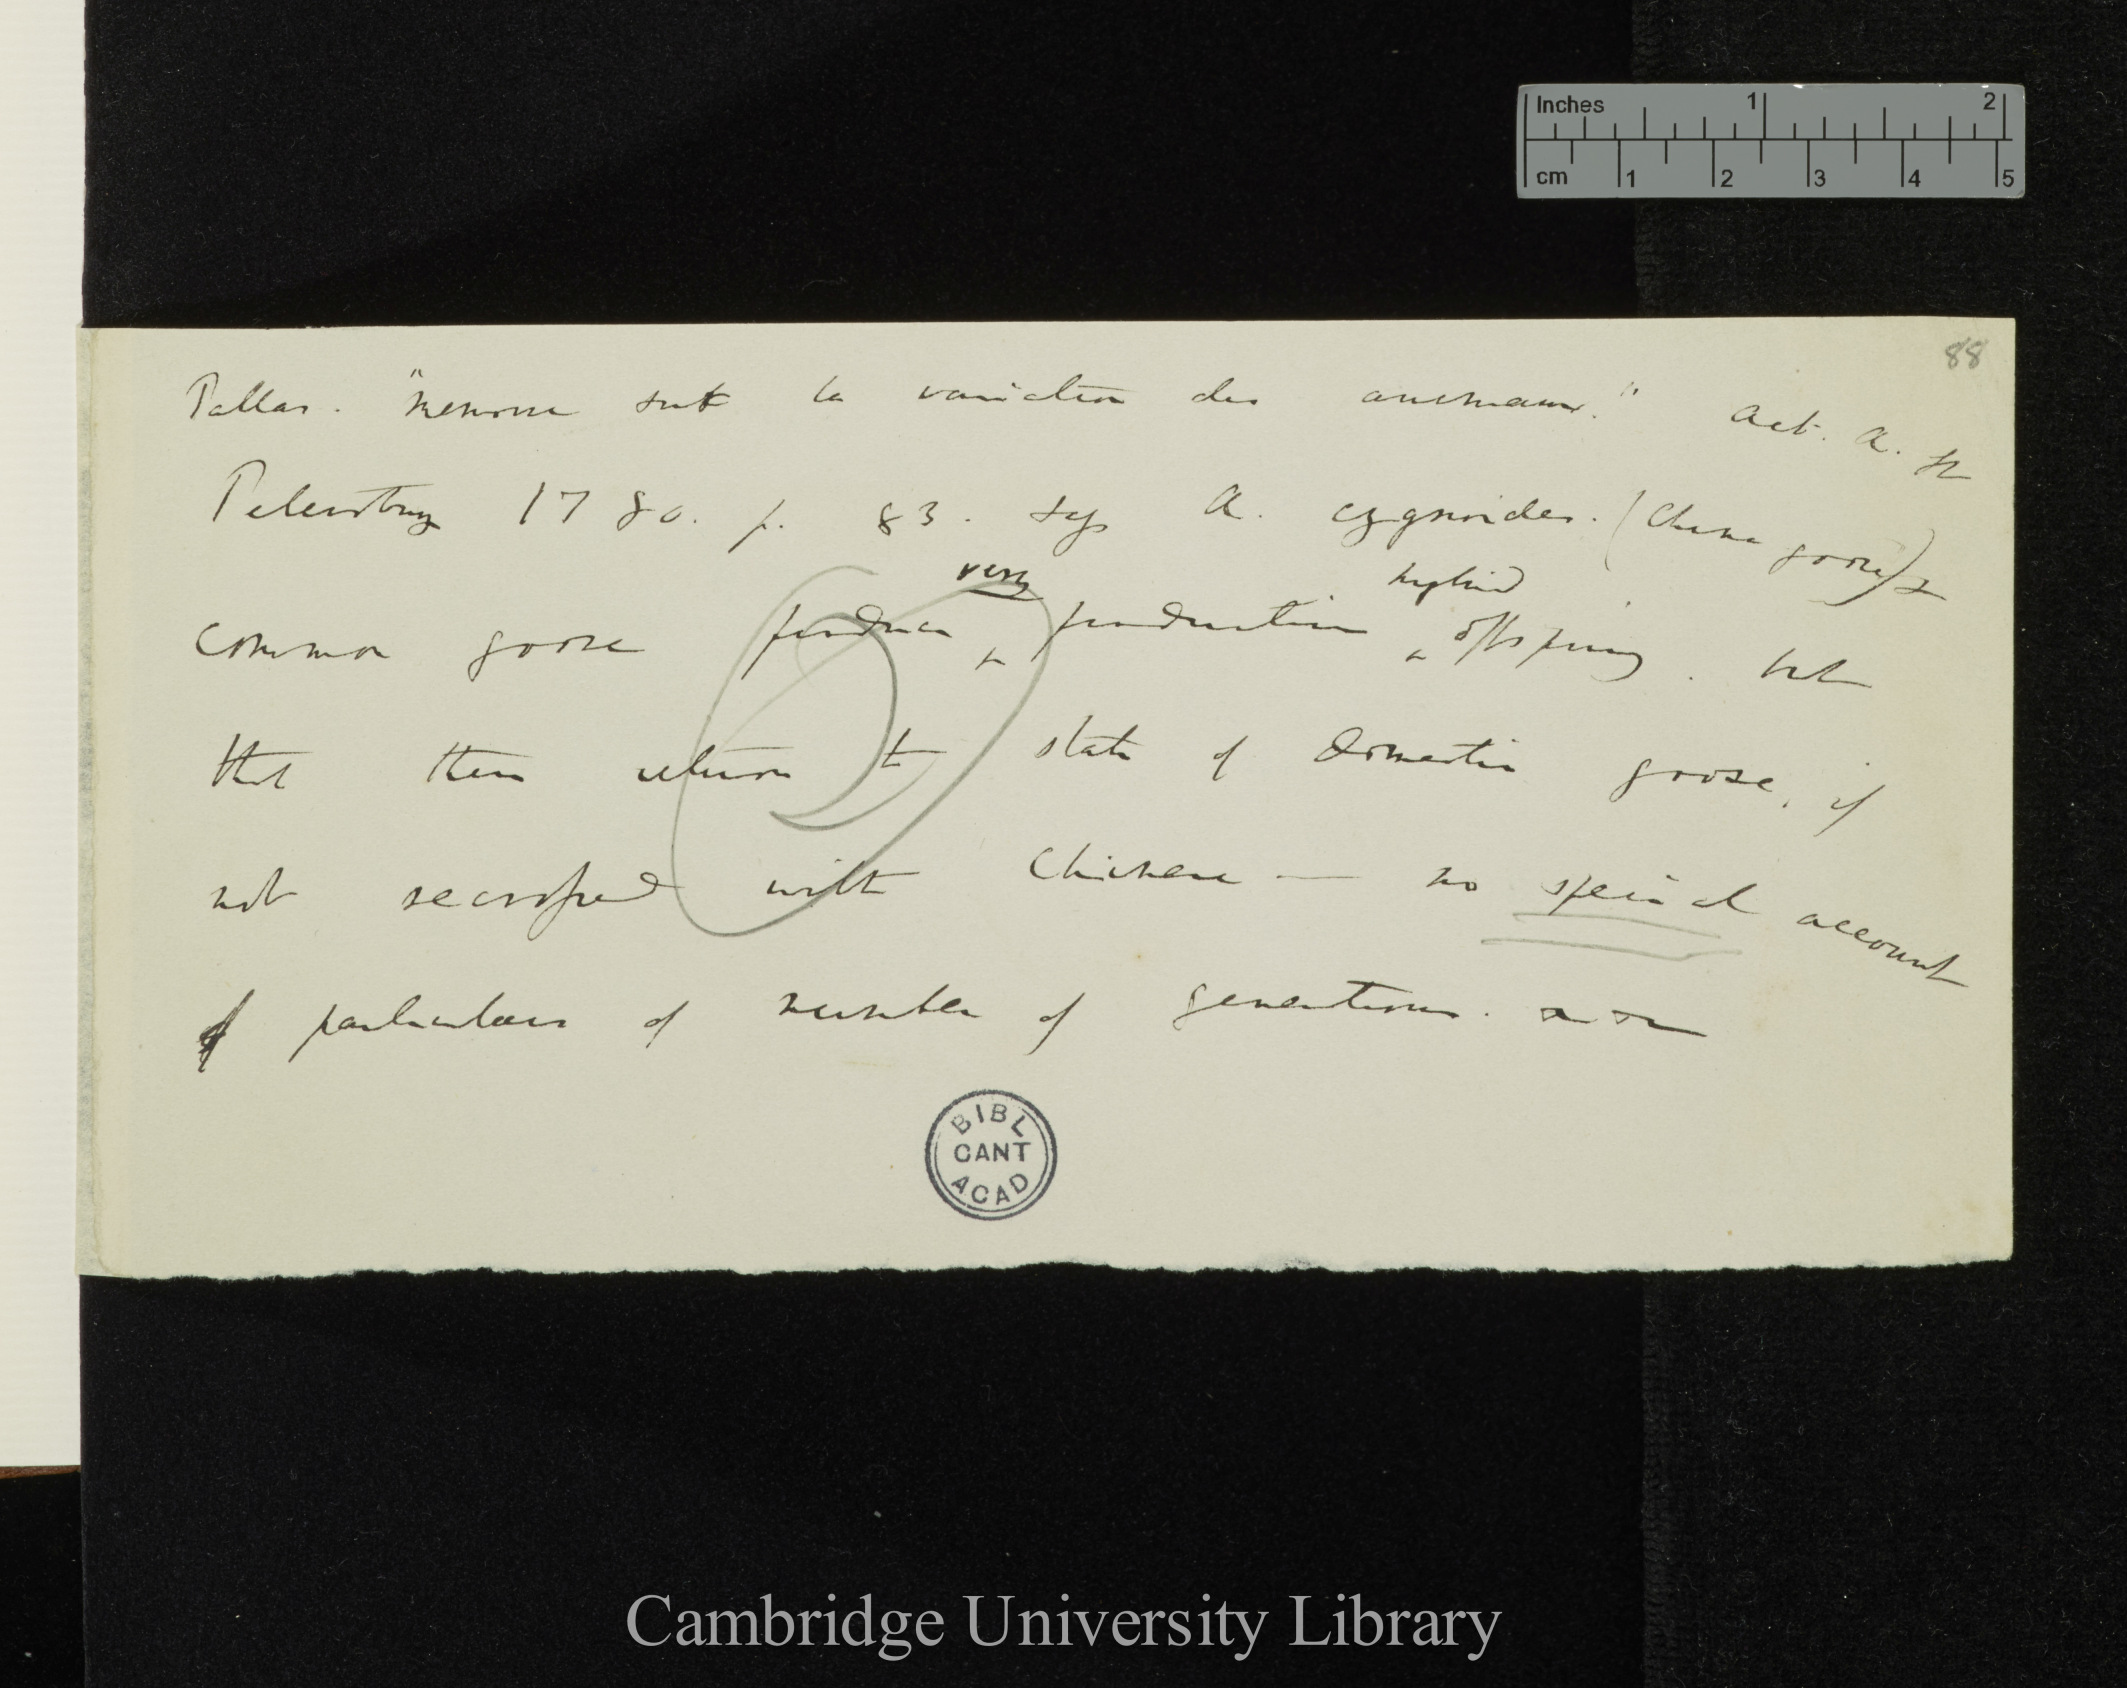 88
Pallas. "memoire sur la variation des animaux." Act. A. St
Petersburg 1780. p. 83. says A. cygnoides. (China goose) &
common goose produce very production hybrid offspring. but
that then return to state of domestic goose, if
not recrossed with Chinese — no special account
of particulars of number of generations.
BIBL
CANT
ACAD
Inches 1 2
cm 1 2 3 4 5
Cambridge University Library